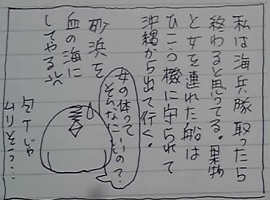 私は海兵隊取ったら
終わると思ってる。果物
と女を連れた船は
ひこう機に守られて
沖縄から出て行く。
砂浜を
血の海に
してやる
女の体って
いーの？て…
そんなに